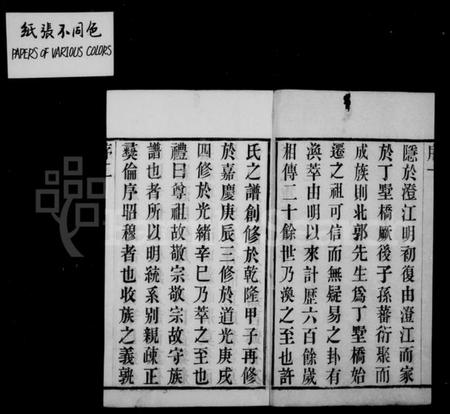 紙張不同色
PAPERS OF VARIOUS COLORS
隱於澄江明初復由澄江而家
於丁墅橋厥後子孫蕃衍聚而
成族則北郭先生爲丁墅橋始
遷之祖可信而無疑易之卦有
渙萃由明以來計歷六百餘歲
相傳二十餘世乃渙之至也許
氏之譜創修於乾隆甲子再修
於嘉慶庚辰三修於道光庚戌
四修於光緒辛巳乃萃之至也
禮曰尊祖故敬宗敬宗故守族
譜也者所以明統系別親疎正
彝倫序昭穆者也收族之義孰
序二